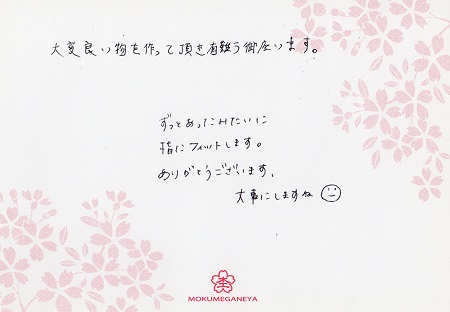 大変良い物を作って頂き有難う御座います。
ずっとあったみたいに
指にフィットします。
ありがとうございます。
大事にしますね
MOKUMEGANEYA